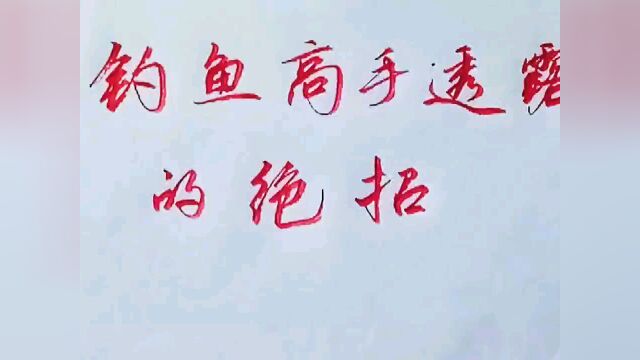 钓鱼高手透露
的绝招